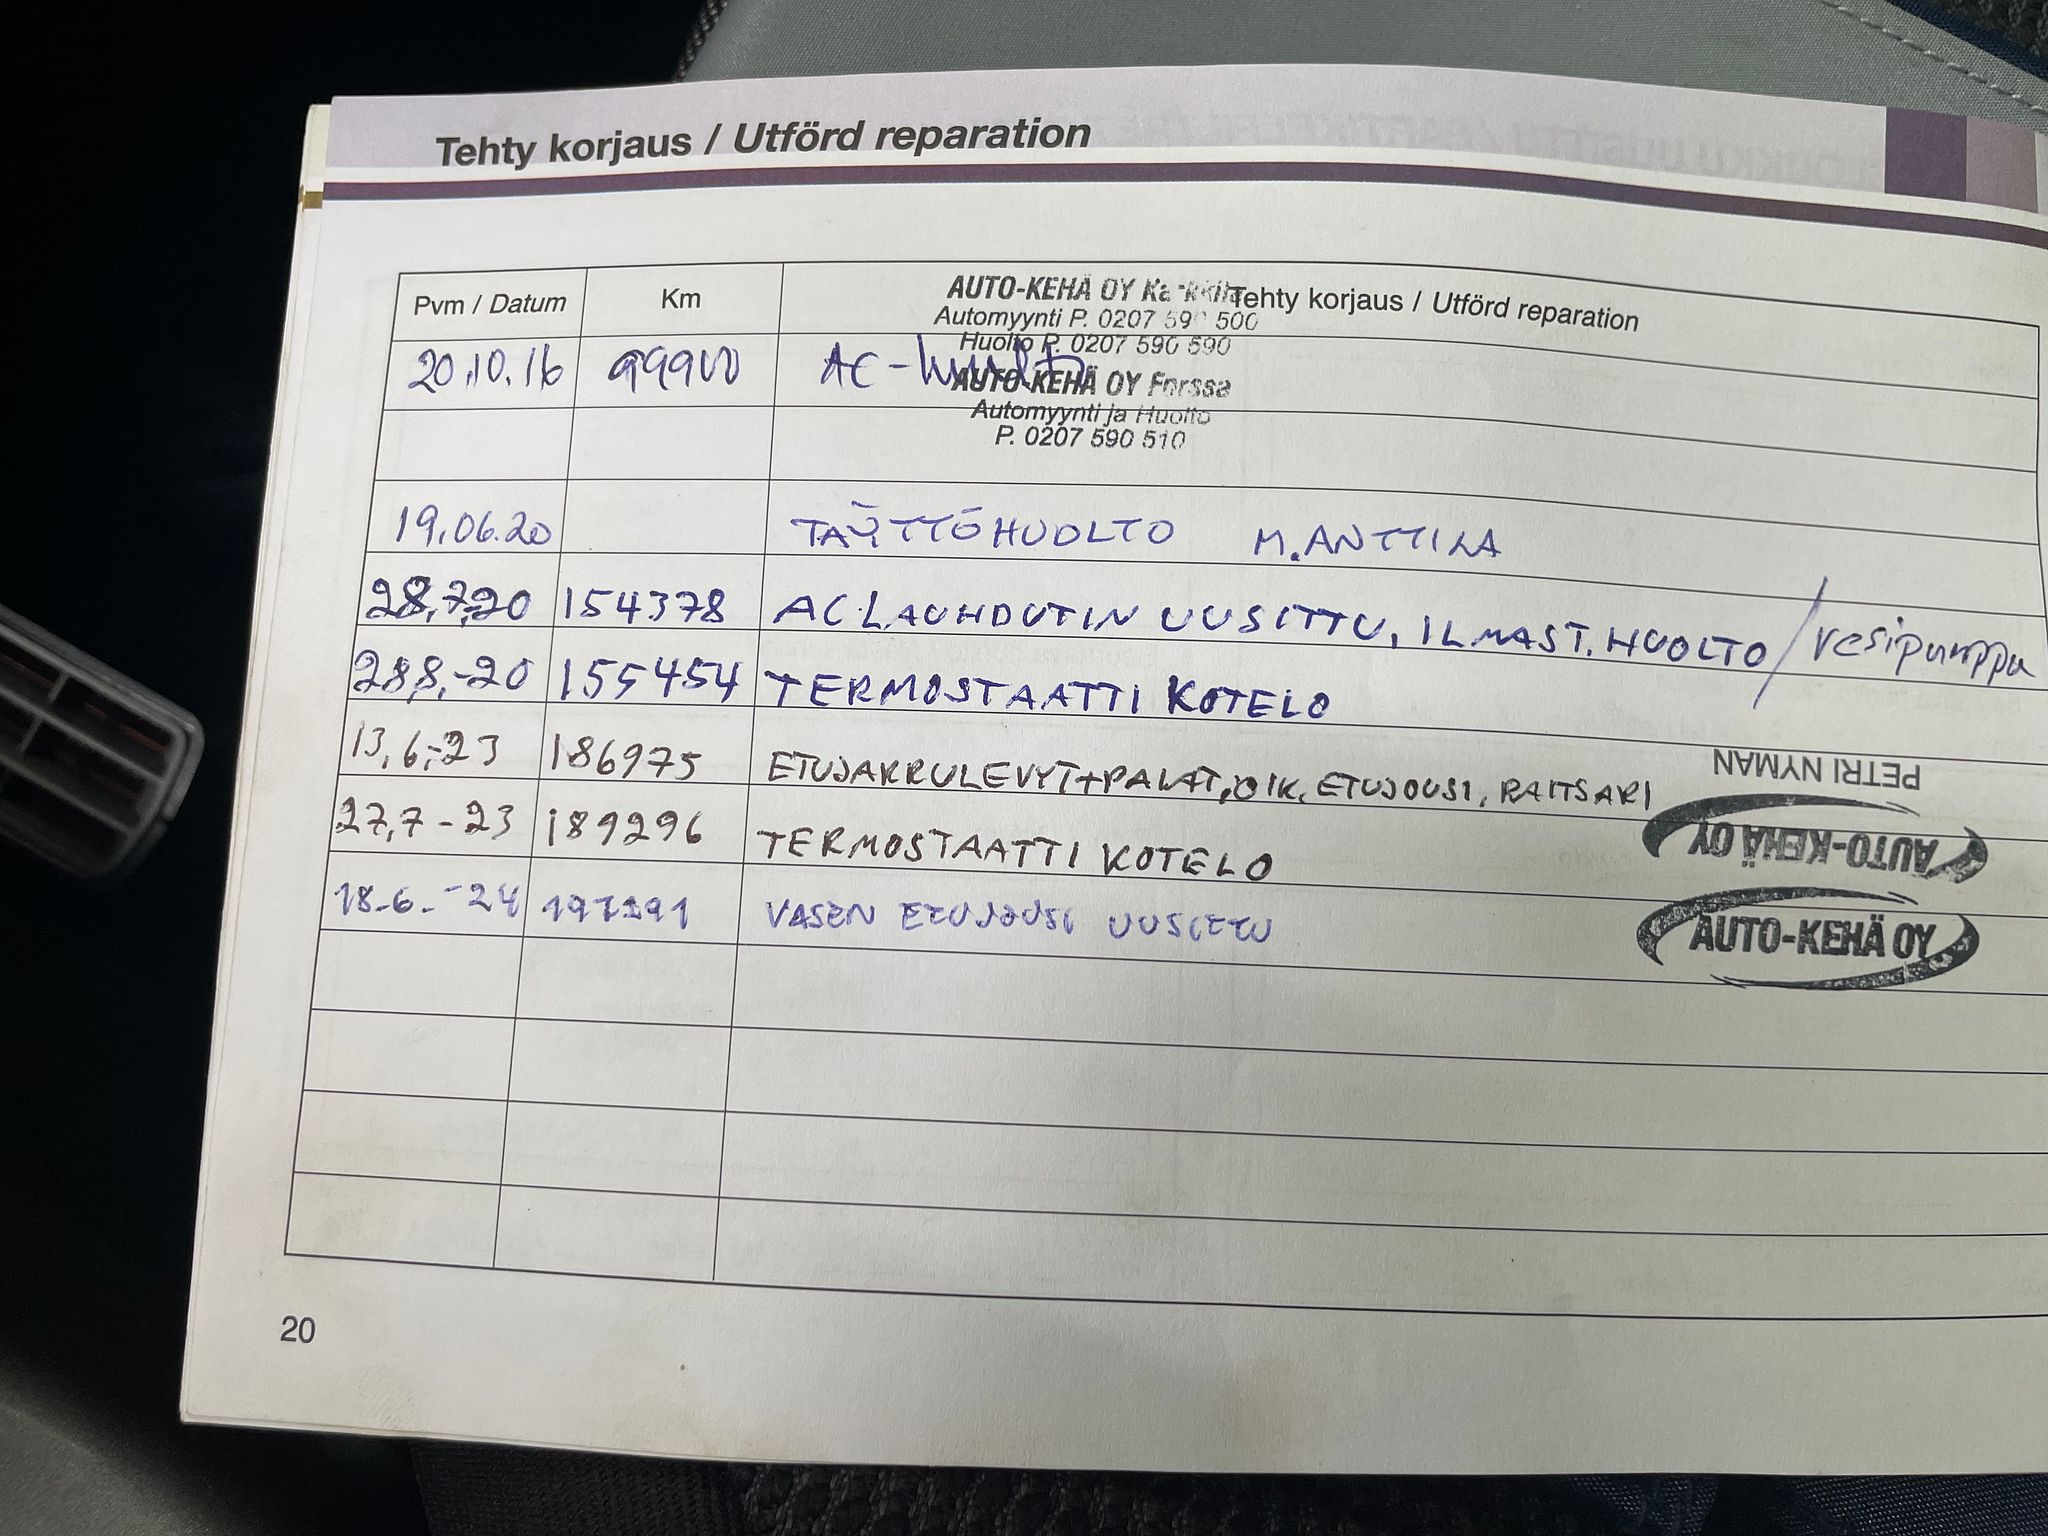 Tehty korjaus / Utförd reparation
Pvm / Datum Km Tehty korjaus / Utförd reparation
AUTO-KEHÄ OY Karkkila
Automyynti P. 0207 590 500
Huolto P. 0207 590 590
20.10.16 99900 AC-huolto
AUTO-KEHÄ OY Forssa
Automyynti ja Huolto
P. 0207 590 510
19.06.20 TÄYTTÖHUOLTO M. ANTTILA
28.7.20 154378 AC LAUHDUTIN UUSITTU, ILMAST. HUOLTO / vesipumppu
28.8.-20 155454 TERMOSTAATTI KOTELO
13.6.-23 186975 ETUJARRULEVYT+PALAT, OIK. ETUJOUSI, RAITSARI
PETRI NYMAN
27.7-23 189296 TERMOSTAATTI KOTELO
AUTO-KEHÄ OY
18.6.-24 VASEN ETUJOUSI UUSITTU
AUTO-KEHÄ OY
20